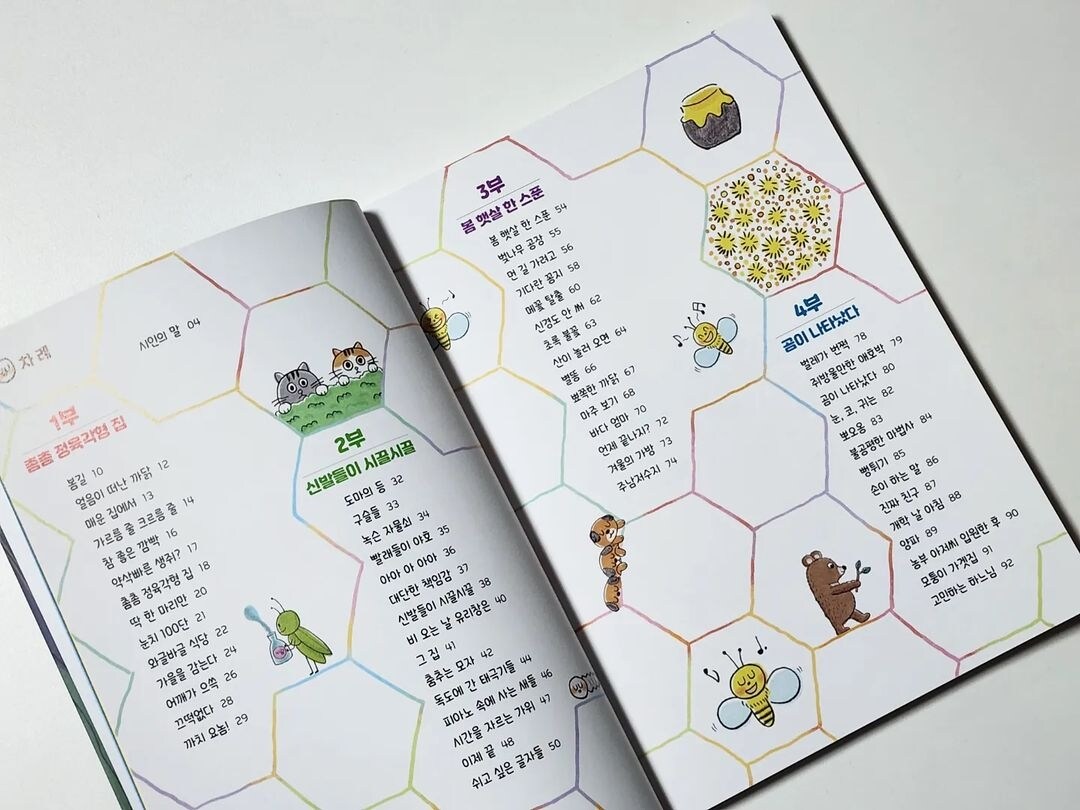 차례
시인의 말 04
1부
촘촘 정육각형 집
봄길 10
얼음이 떠난 까닭 12
매운 집에서 13
가르릉 줄 크르릉 줄 14
참 좋은 깜빡 16
약삭빠른 생쥐? 17
촘촘 정육각형 집 18
딱 한 마리만 20
눈치 100단 21
와글바글 식당 22
가을을 감는다 24
어깨가 으쓱 26
끄떡없다 28
까치 요놈! 29
2부
신발들이 시끌시끌
도마의 등 32
구슬들 33
녹슨 자물쇠 34
빨래들이 야호 35
아아 아 아아 36
대단한 책임감 37
신발들이 시끌시끌 38
비 오는 날 유리창은 40
그 집 41
춤추는 모자 42
독도에 간 태극기들 44
피아노 속에 사는 새들 46
시간을 자르는 가위 47
이제 끝 48
쉬고 싶은 글자들 50
3부
봄 햇살 한 스푼
봄 햇살 한 스푼 54
벚나무 공장 55
먼 길 가려고 56
기다란 꽁지 58
메꽃 탈출 60
신경도 안 써 62
초록 불꽃 63
산이 놀러 오면 64
별똥 66
뾰쪽한 까닭 67
마주 보기 68
바다 엄마 70
언제 끝나지? 72
겨울의 가방 73
주남저수지 74
4부
곰이 나타났다
벌레가 번쩍 78
쥐방울만한 애호박 79
곰이 나타났다 80
눈, 코, 귀는 82
뽀오옹 83
불공평한 마법사 84
뻥튀기 85
손이 하는 말 86
진짜 친구 87
개학 날 아침 88
양파 89
농부 아저씨 입원한 후 90
모퉁이 가겟집 91
고민하는 하느님 92